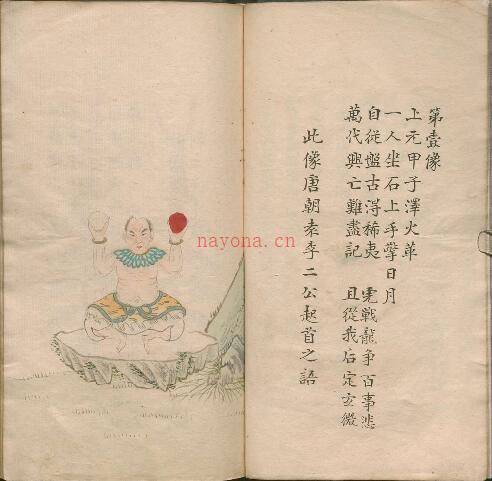 第壹像
上元甲子澤火革
一人坐石上手擎日月
自從盤古得稀夷 虎戰龍爭百事悲
萬代興亡難盡記 且從我后定玄微
此像唐朝袁李二公起首之語
nayona.cn